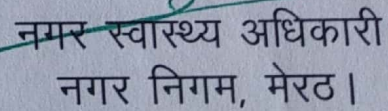 नगर स्वास्थ्य अधिकारी
नगर निगम, मेरठ।